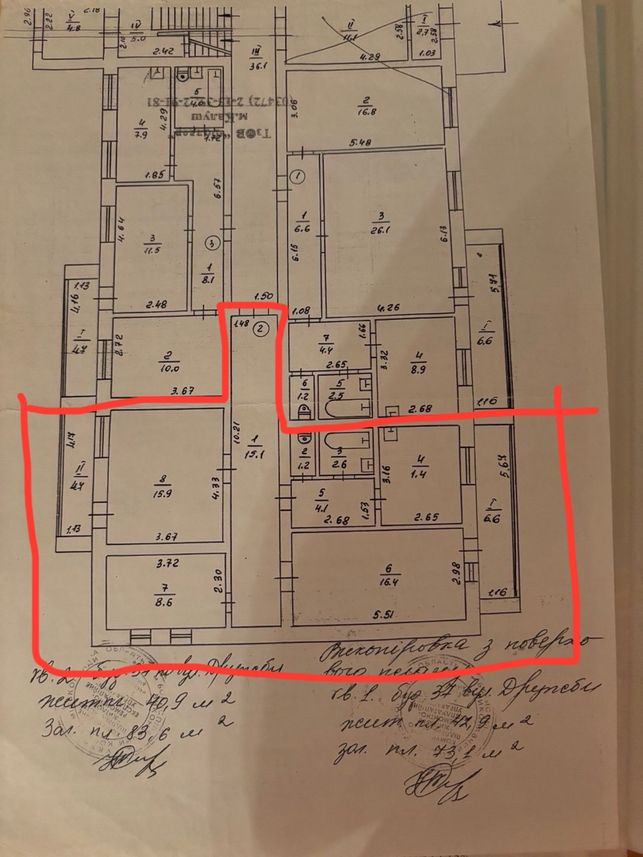 2.96
V
4.8
2.22
2.18
2.10
IV
5.0
2.42
III
36.1
II
11.1
4.29
2.58
I
2.7
2.58
1.03
4
7.9
4.29
1.85
5
4.0
1.72
(03472) 2-13-33, 2-91-81
м.Калуш
3.06
2
16.8
5.48
6.57
1
1
6.6
6.15
1.08
3
26.1
6.13
4.26
4.64
3
11.5
2.48
3
1
8.1
1.50
1.13
4.16
I
4.7
2.72
2
10.0
3.67
1.48
2
7
4.4
1.66
2.65
3.32
4
8.9
2.68
5.71
I
6.6
1.16
6
1.2
5
2.5
4.17
II
4.7
1.13
8
15.9
4.33
3.67
10.21
1
15.1
2
1.2
3
2.6
3.16
4
1.4
2.65
5.67
I
6.6
1.16
5
4.1
1.53
2.68
3.72
7
8.6
2.30
6
16.4
2.98
5.51
Викопіровка з поверхо
вого
кв. 2 буд 31 по вул. Дружби
житл. 40,9 м 2
Заг. пл 83,6 м 2
кв. 1. буд 31 вул Дружби
жит пл. 42,9 м 2
заг. пл. 73,1 м 2